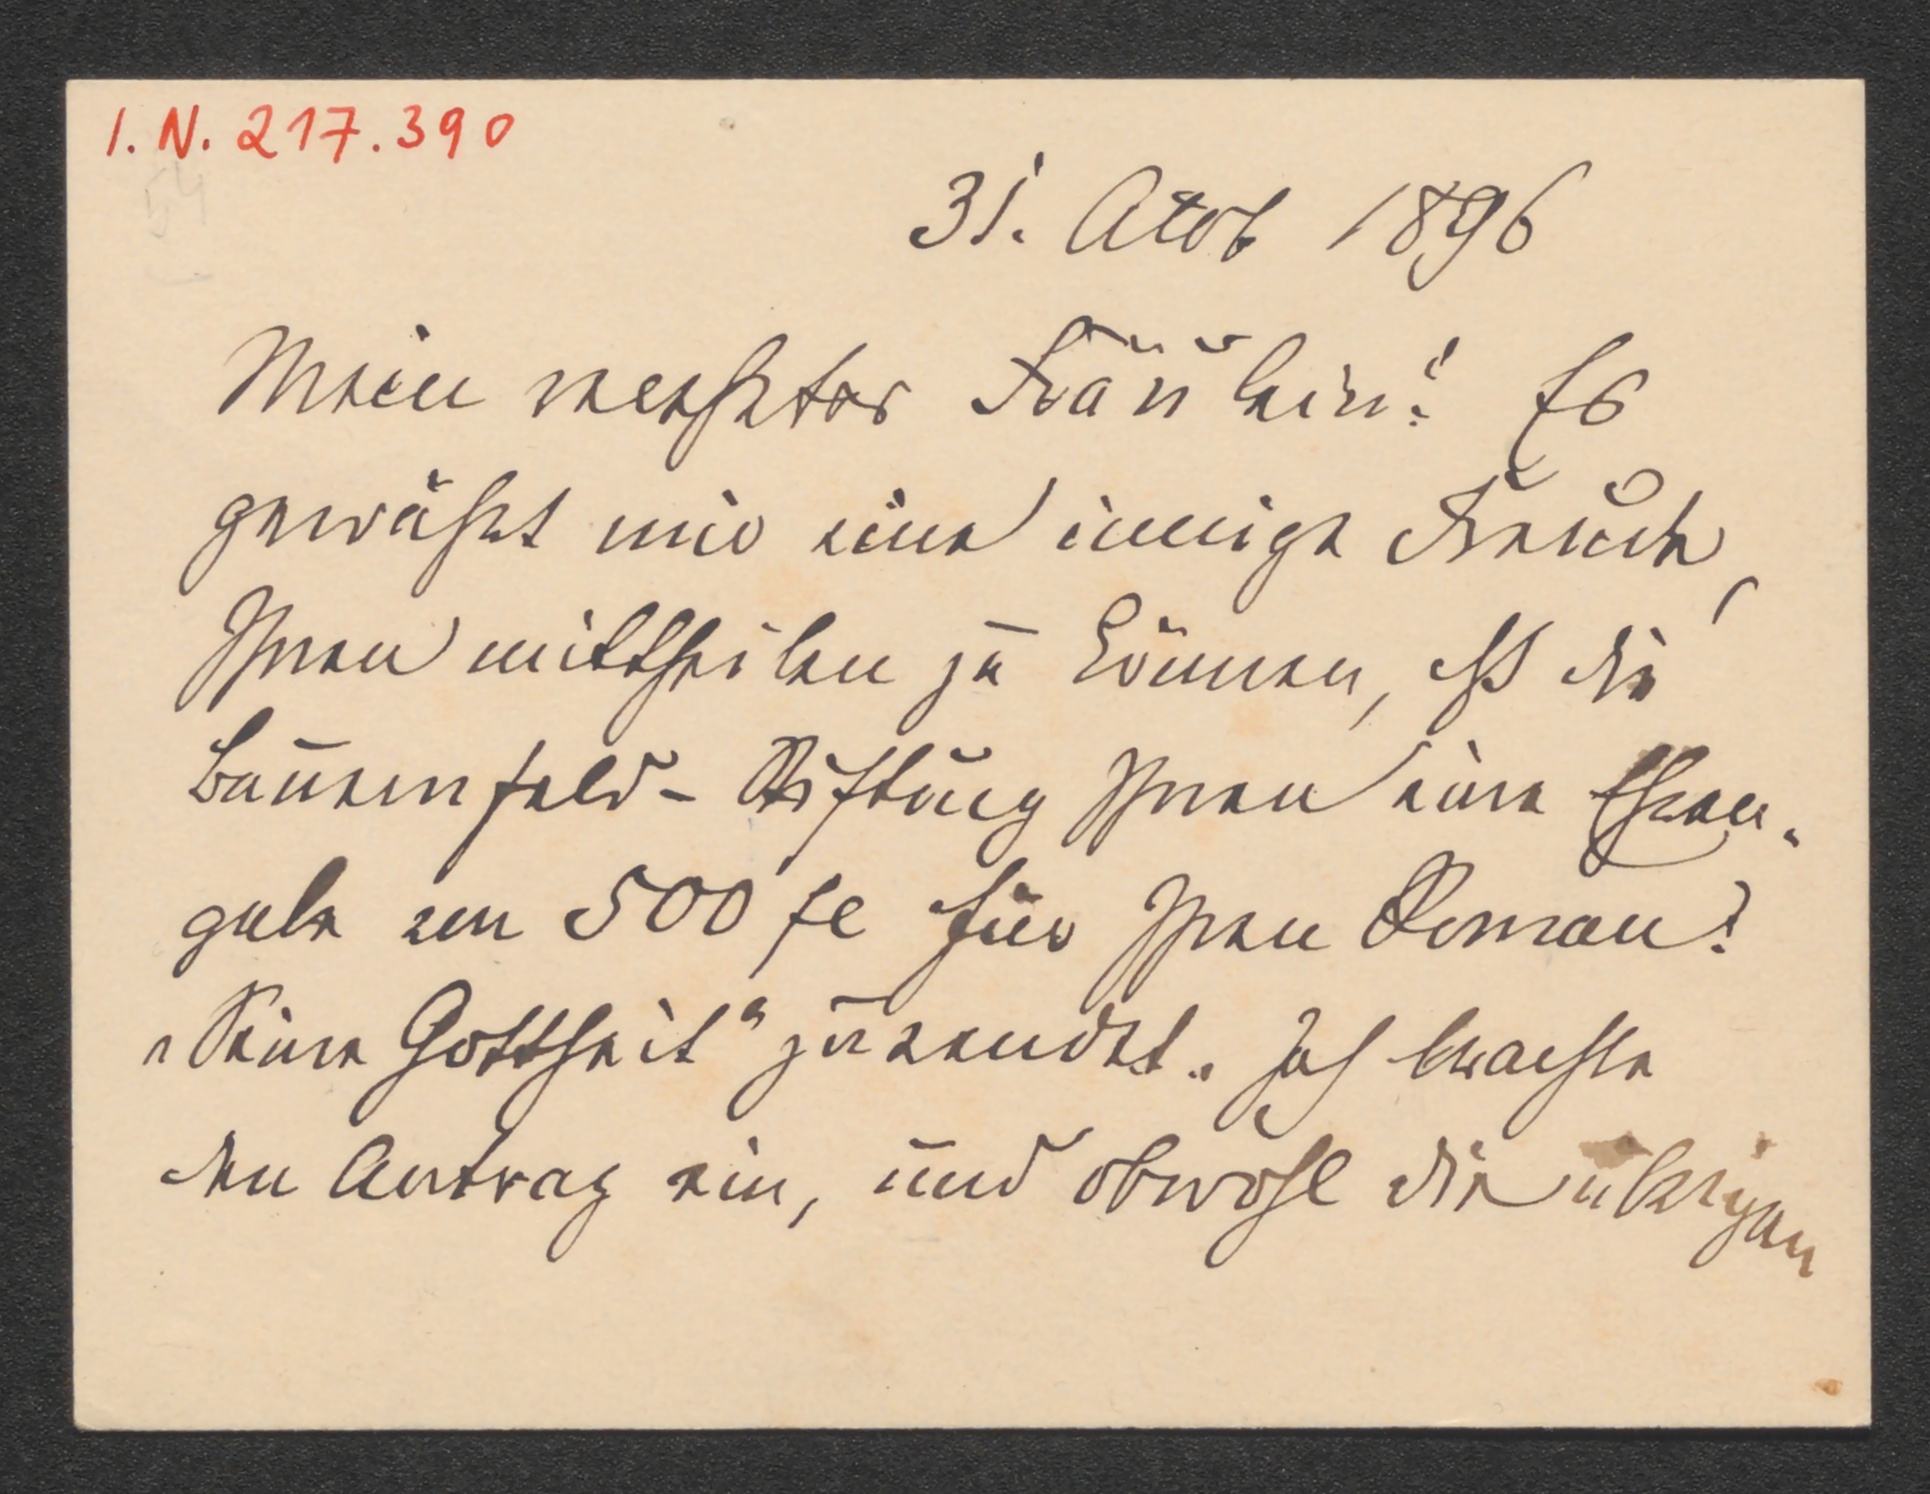 I. N. 217.390
54
31. Octob 1896
Mein verehrtes Fräulein! Es
gewährt mir eine innige Freude,
Ihnen mittheilen zu können, dß die
Bauernfeld-Stiftung Ihnen eine Ehren-
gabe von 500 fl für Ihren Roman:
„Seine Gottheit" zusendet. Ich brachte
den Antrag ein, und obwohl die übrigen